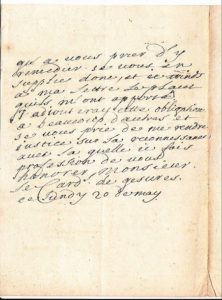 qu a vous prier d'y
remedier je vous en
supplie donc, et ce
a ma Lettre la place
quils m ont
j adjous cette obligation
a beaucoup d'autres et
je vous prie de me rendre
justice sur la reconnoissance
avec la quelle je fais
profession de vous
honorer, Monsieur.
le Card. de gesvres.
ce Lundy 20 de may